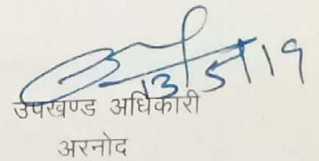 13/5/19
उपखण्ड अधिकारी
अरनोद